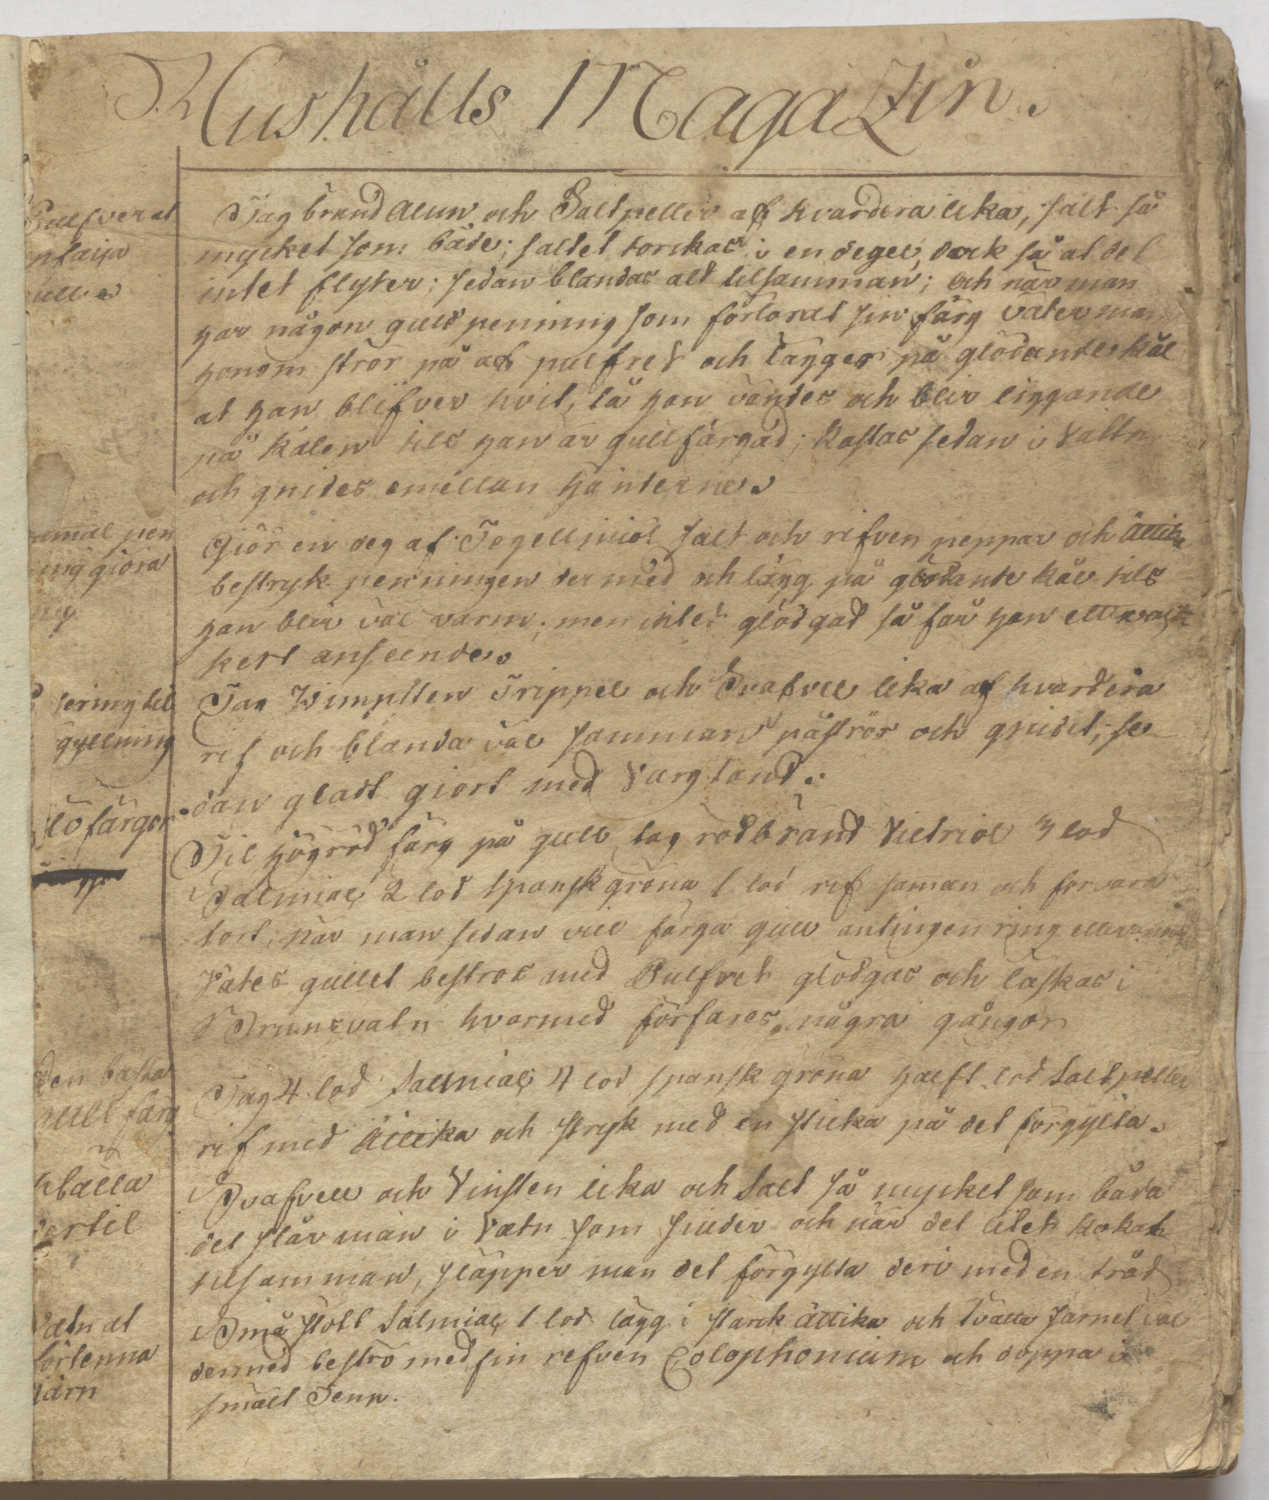 Hushålls MagaZin.
Pulfver at
Tag bränd Alun och Saltpetter af hvardera lika, salt så
mycket som både; saltet torckas i en degel, dock så at det
intet flyter; sedan blandas alt tilsamman; och när man
har någon gull penning som förlorat sin färg väter man
honom strör på af pulfret och lägges på glödande kål
at han blifver hvit, så han vändes och blir liggande
på kålen tils han är gullfärgad; kastas sedan i Vattn
och gnides emellan händerne.
Giör en deg af Tegelmiöl salt och rifven peppar och Ättika
bestryk penningen dermed och lägg på glödande kål tils
han blir väl varm; men intet glödgad så får han ett
kert anseende.
ning giöra
Tag Trippel och Svafvel lika af hvardera
rif och blanda väl samman påströr och gnidet, se
dan glatt giort med Vargtand.
gyllning
Til högröd färg på gull tag rödbränd Victriol 3 lod
Salmiac 2 lod Spanskgröna 1 lod rif saman och förvara
tort, när man sedan vill färga gull antingen ring eller
Vätes gullet beströs med Pulfret glödgas och läskas i
Brunsvatn hvarmed förfares några gånger
den bästa
gull färg
Tag 4 lod Salmiac 4 lod spansk gröna halft lod Saltpetter
rif med Ättika och stryk med en sticka på det förgylta.
Svafvel och Vinsten lika och Salt så mycket som båda
det slår man i Vatn som siuder och när det litet kokat
tilsamman, släpper man det förgylta deri med en tråd
dertil
Små stött Salmiac 1 lod lägg i starck ättika och tvätta Jarnet väl
dermed beströ med fin refven Colophonium och doppa i
smält Tenn.
Vatn at
förtenna
järn